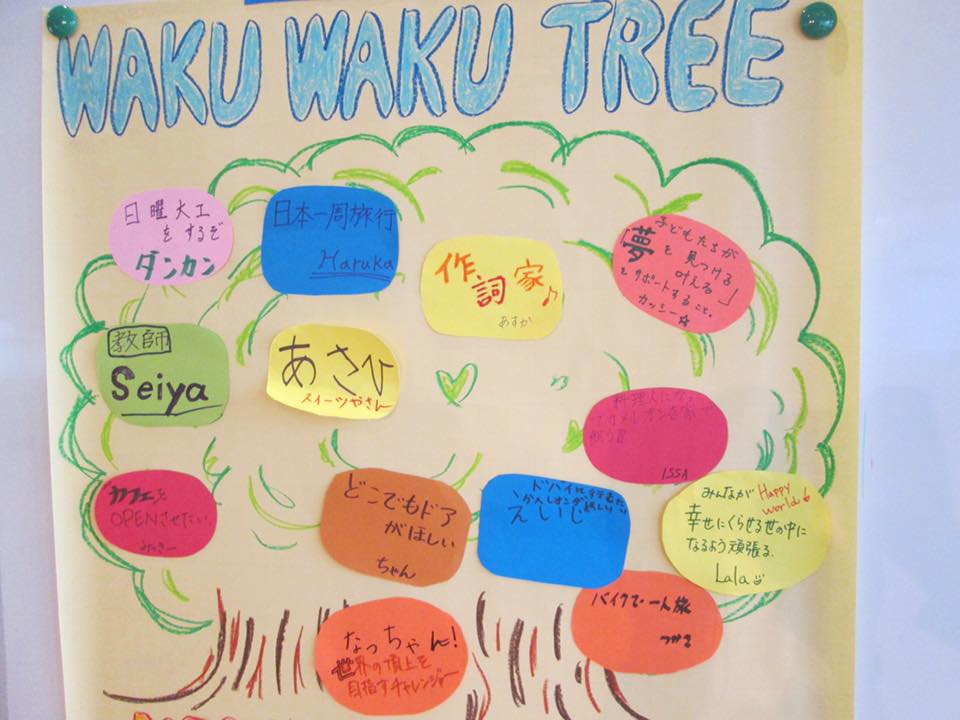 WAKU WAKU TREE
日曜大工
をするぞ
ダンカン
日本一周旅行
Haruka
作詞家♪
あすか
子どもたちが
「夢を見つける
叶える」
をサポートすること。
カッシー☆
教師
Seiya
あさひ
スイーツやさん
料理人になる
ISSA
カフェを
OPENさせたい。
みっきー
どこでもドア
がほしい
ちゃん
ドバイに
えいじ
みんなが Happy world
幸せにくらせる世の中に
なるよう頑張る。
Lala
バイクで一人旅
なっちゃん!
世界の頂上を
目指すチャレンジャー